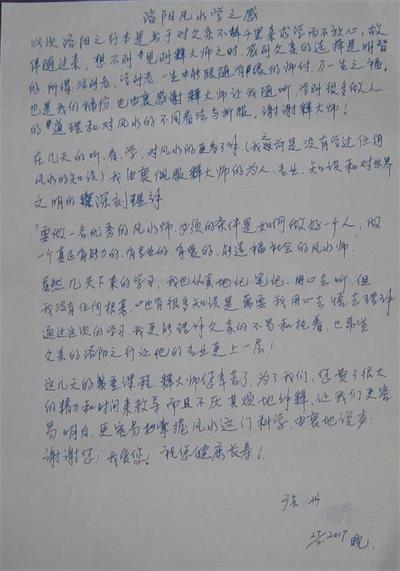 洛阳风水学之感
以次洛阳之行本是出于对父亲不辞千里来求学而不放心，故
伴随过来，想不到『见到释大师之时，感到父亲的选择是明智
的，所谓：活到老，学到老，一生中能跟随有缘的师付，乃一生之福。
也是我们的福份，也由衷感谢释大师让我随听，学到很多做人
的『道理和对风水的不同看法与折服。谢谢释大师！
在几天的听、看、学，对风水的更多了解（我之前是没有学过任何
风水的知识）我由衷佩服释大师的为人、专业、知识和对世界
文明的深刻理解
“要做一名优秀的风水师，必须的条件是如何做好一个人，做
一个真正有能力的、有专业的、有爱的、能造福社会的风水师”
虽然几天下来的学习，我也认真地记笔记，用心去听，但
我没有任何根基，也有很多知识是需要我用心去悟去理解
通过这次的学习，我更能理解父亲的不易和执着，
父亲的洛阳之行让他的专业更上一层！
这几天的课程，释大师您辛苦了，为了我们，您费了很大
的精力和时间来教导而且不厌其烦地讲解，让我们更容
易明白，更容易掌握风水这门科学，由衷地说声：
谢谢您！我爱您！祝您健康长寿！
2017 晚